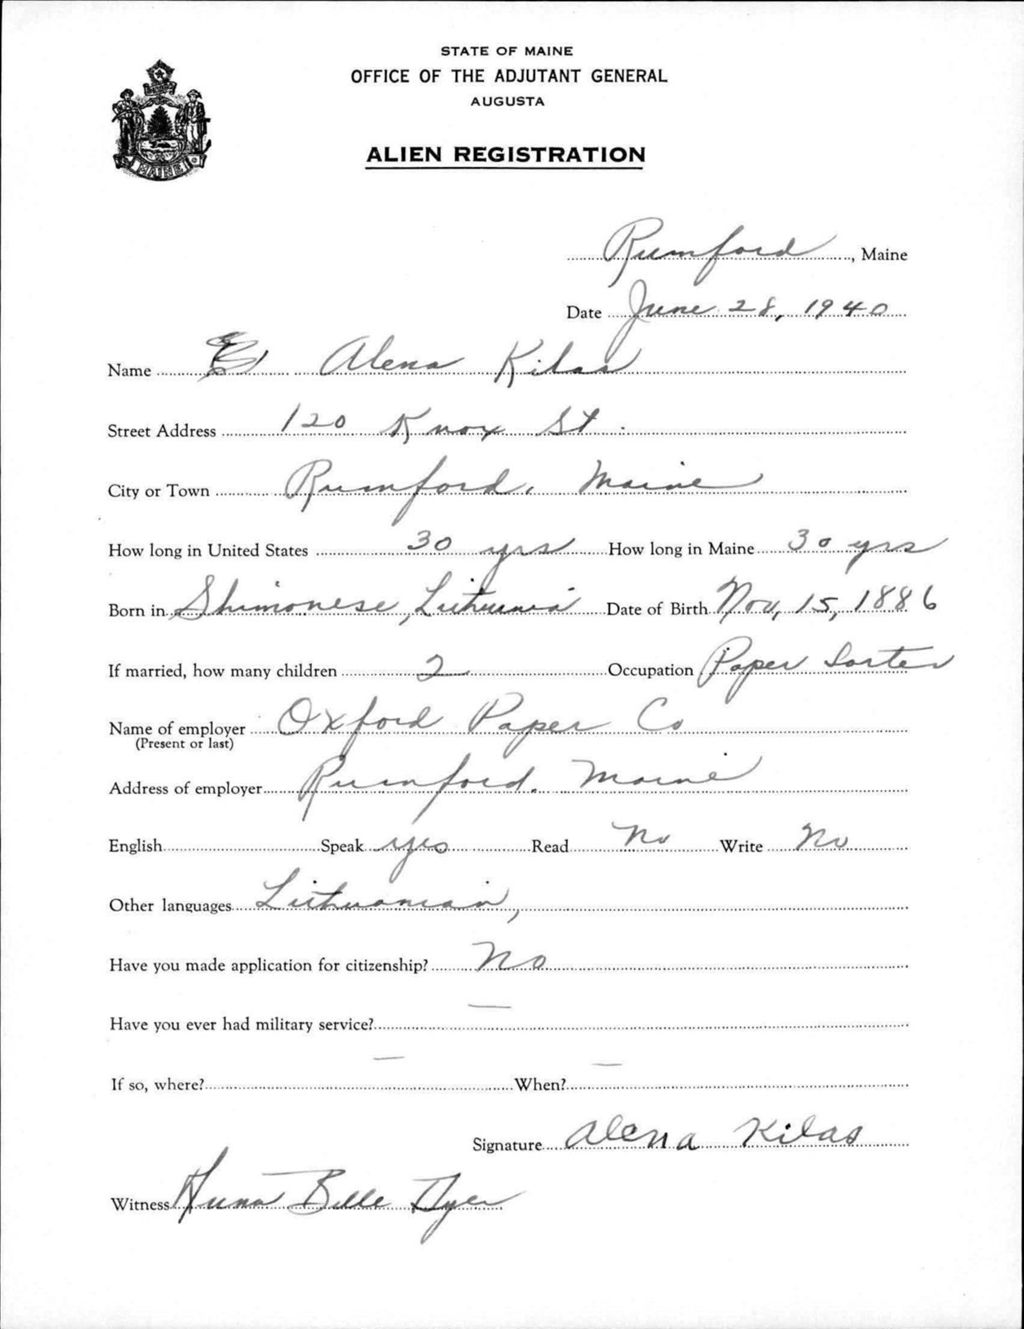 STATE OF MAINE
OFFICE OF THE ADJUTANT GENERAL
AUGUSTA
ALIEN REGISTRATION
MAINE
Rumford, Maine
Date June 28, 1940
Name Alena Kilas
Street Address 120 Knox St.
City or Town Rumford, Maine
How long in United States 30 yrs How long in Maine 30 yrs
Born in Shimonese, Lithuania Date of Birth Nov, 15, 1886
If married, how many children 2 Occupation Paper Sorter
Name of employer Oxford Paper Co
(Present or last)
Address of employer Rumford. Maine
English Speak yes Read No Write No
Other languages Lithuanian,
Have you made application for citizenship? No
Have you ever had military service? —
If so, where? — When? —
Signature Alena Kilas
Witness Anna Belle Dyer